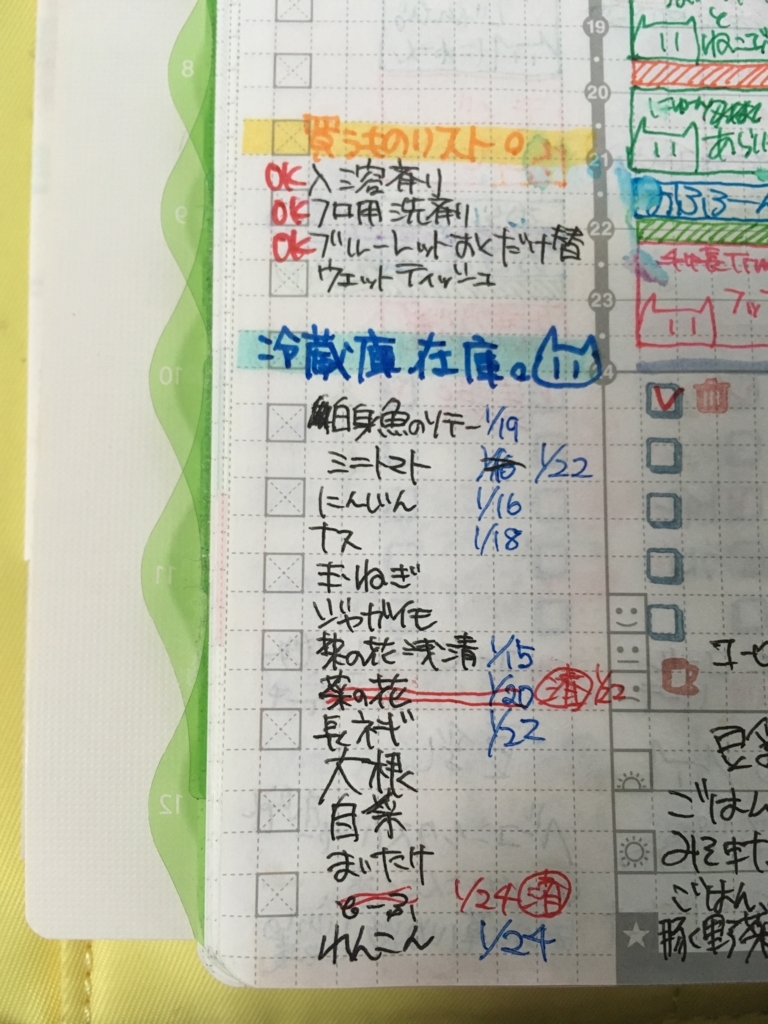 8
9
10
11
12
19
20
21
22
23
買うものリスト。
OK 入浴剤
OK フロ用洗剤
OK ブルーレットおくだけ替
ウェットティッシュ
冷蔵庫在庫。
白身魚のソテー 1/19
ミニトマト 1/22
にんじん 1/16
ナス 1/18
玉ねぎ
ジャガイモ
菜の花浅漬 1/15
菜の花 1/20 消 1/22
長ネギ 1/22
大根
白菜
まいたけ
とーふ 1/24 消
れんこん 1/24
と
ねこご
あらい
ごはん
みそ
ごはん、
豚と野菜